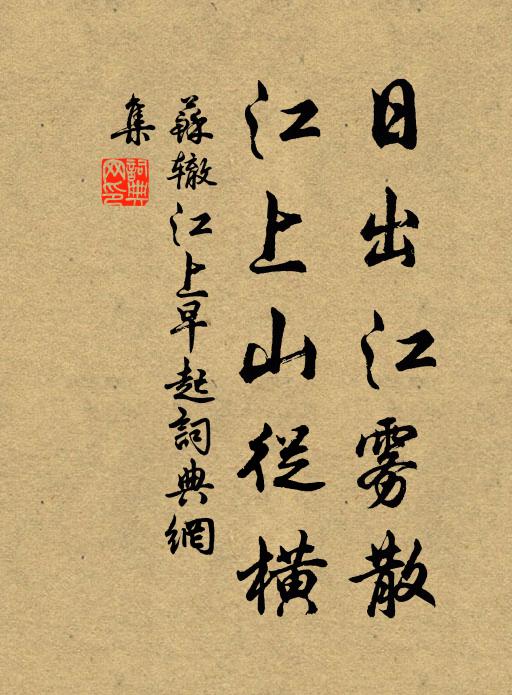 日出江雾散
江上山從橫
蘇辙江上早起詞典網
集
詞典
网印